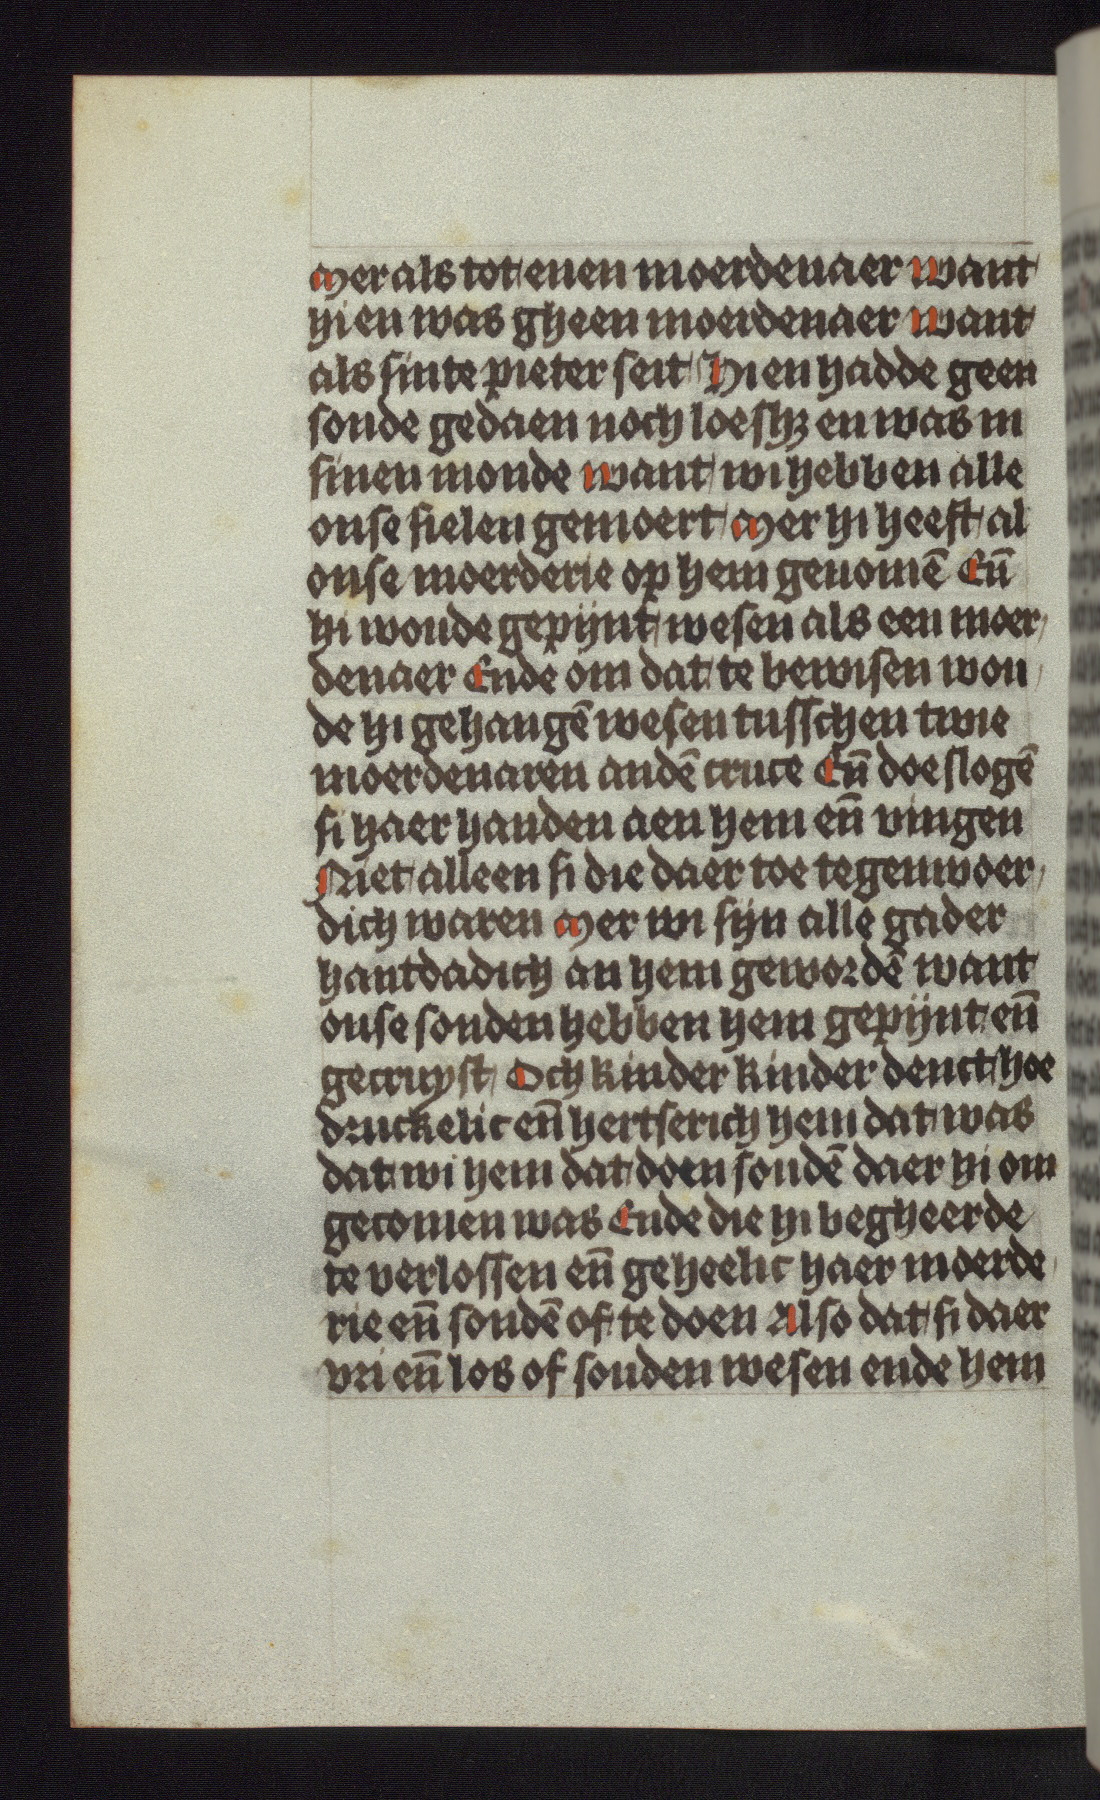 Mer als tot enen moerdenaer want
hi en was gheen moerdenaer want
als sinte pieter seit Hi en hadde geen
sonde gedaen noch loesh3 en was in
sinen monde want wi hebben alle
onse sielen gemoert Mer hi heeft al
onse moerderie op hem genomē Eñ
hi woude gepijnt wesen als een moer
denaer Ende om dat te bewisen wou
de hi gehangē wesen tusschen twie
moerdenaren andē cruce Eñ doe slogē
si haer handen aen hem eñ vingen
Niet alleen si die daer toe tegenwoer
dich waren Mer wi sijn alle gader
hantdadich an hem gewordē want
onse sonden hebben hem gepijnt eñ
gecruyst Och kinder kinder denct hoe
druckelic eñ hertserich hem dat was
dat wi hem dat doen soudē daer hi om
gecomen was Ende die hi begheerde
te verlossen eñ geheelic haer moerde
rie eñ sondē of te doen Also dat si daer
vri eñ los of souden wesen ende hem